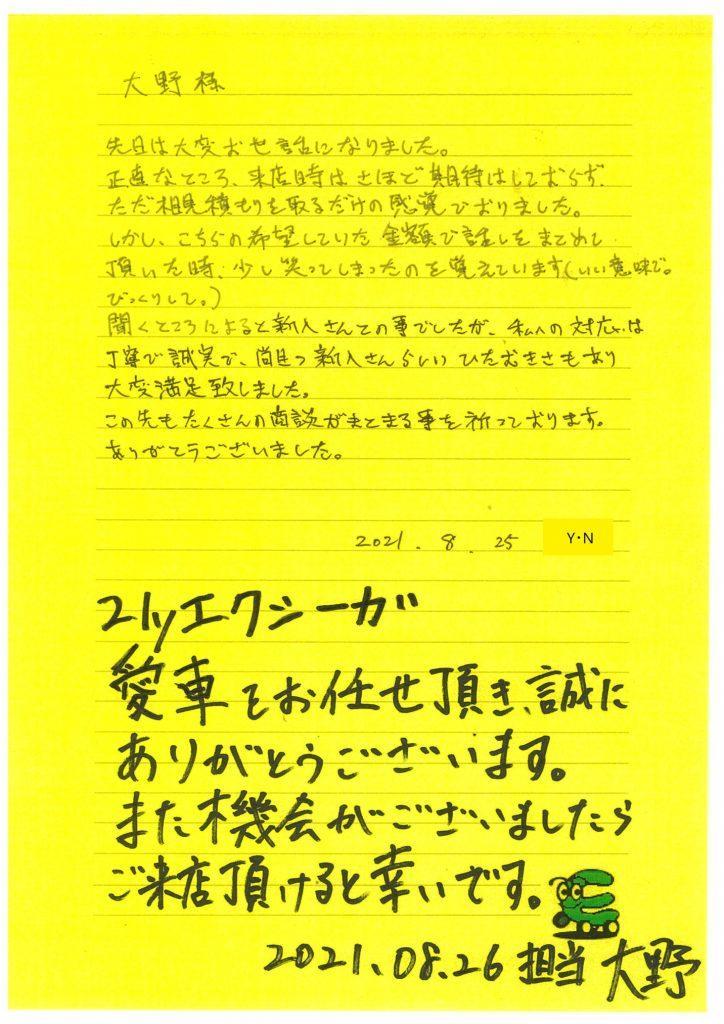 大野様
先日は大変お世話になりました。
正直なところ、来店時はさほど期待はしておらず、
ただ相見積もりを取るだけの感覚でおりました。
しかし、こちらの希望していた金額で話しをまとめて
頂いた時、少し笑ってしまったのを覚えています(いい意味で。
びっくりして。)
聞くところによると新人さんとの事でしたが、私への対応は
丁寧で誠実で、尚且つ新人さんらしいひたむきさもあり
大変満足致しました。
この先もたくさんの商談がまとまる事を祈っております。
ありがとうございました。
2021. 8. 25 Y・N
21yエクシーガ
愛車をお任せ頂き、誠に
ありがとうございます。
また機会がございましたら
ご来店頂けると幸いです。
2021.08.26 担当 大野